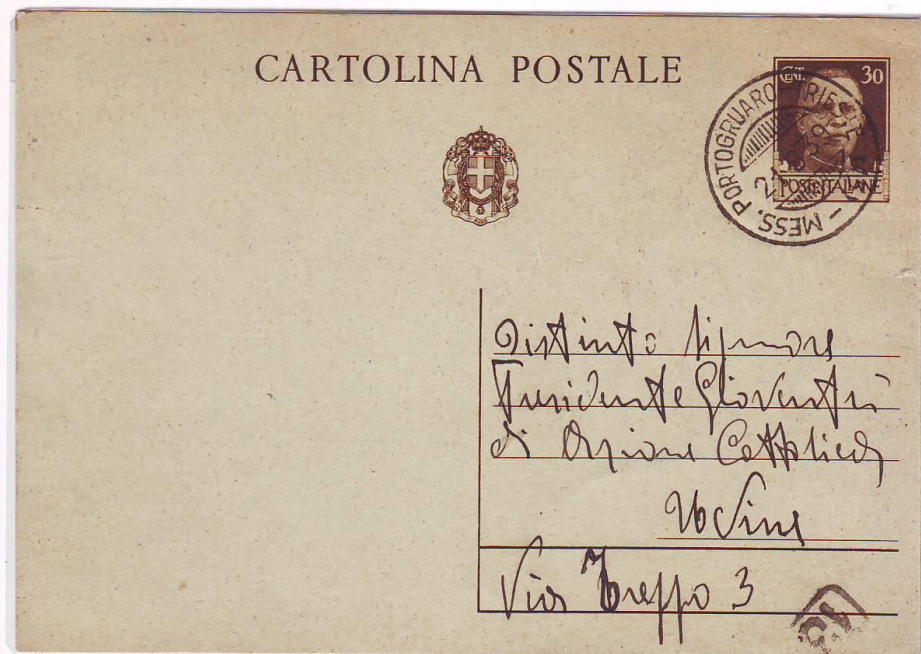 CARTOLINA POSTALE
CENT. 30
POSTE ITALIANE
MESS. PORTOGRUARO - TRIESTE
Distinto Signore
Presidente Gioventù
di Azione Cattolica
Udine
Via Treppo 3